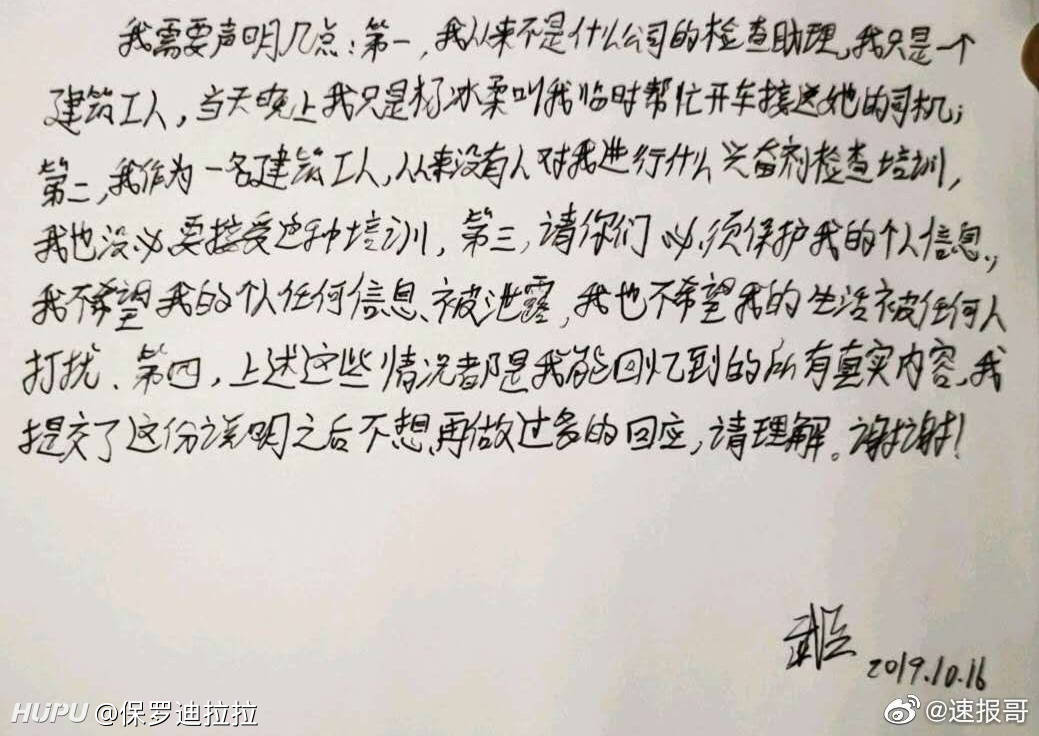 我需要声明几点:第一,我从来不是什么公司的检查助理,我只是一个
建筑工人,当天晚上我只是杨冰柔叫我临时帮忙开车接送她的司机;
第二,我作为一名建筑工人,从来没有人对我进行什么兴奋剂检查培训,
我也没必要接受这种培训,第三,请你们必须保护我的个人信息,
我不希望我的个人任何信息被泄露,我也不希望我的生活被任何人
打扰、第四,上述这些情况都是我能回忆到的所有真实内容,我
提交了这份说明之后不想再做过多的回应,请理解。谢谢!
2019.10.16
HUPU @保罗迪拉拉
@速报哥